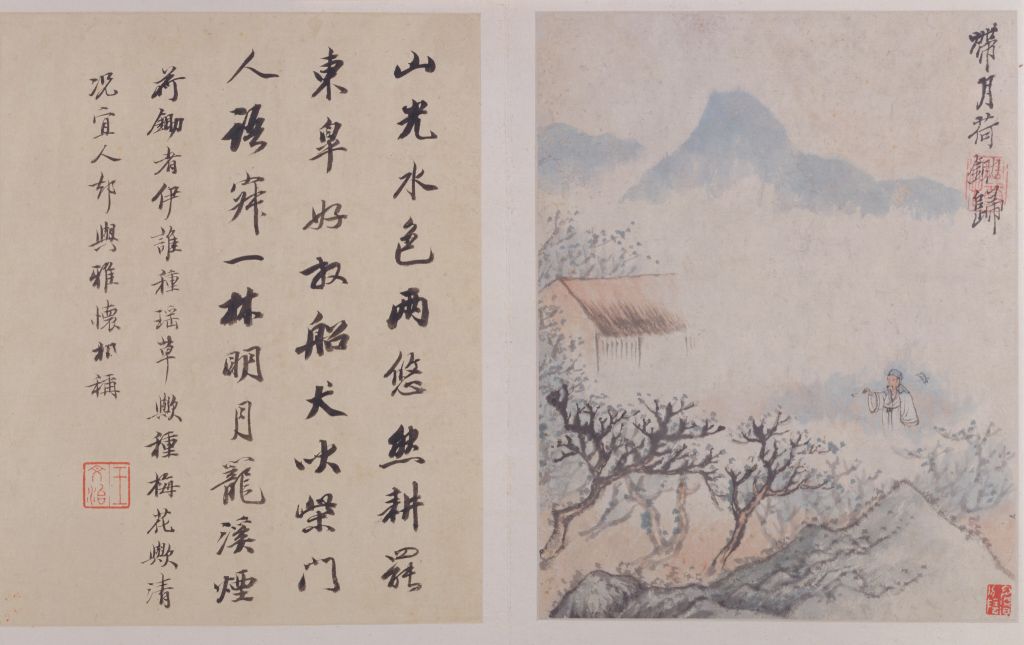 帶月荷鋤歸
山光水色两悠然耕罷
東皐好放船犬吠柴门
人語寂一林明月籠溪煙
荷鋤者伊誰種瑶草歟種梅花歟清
况宜人却與雅懷相稱
王文治